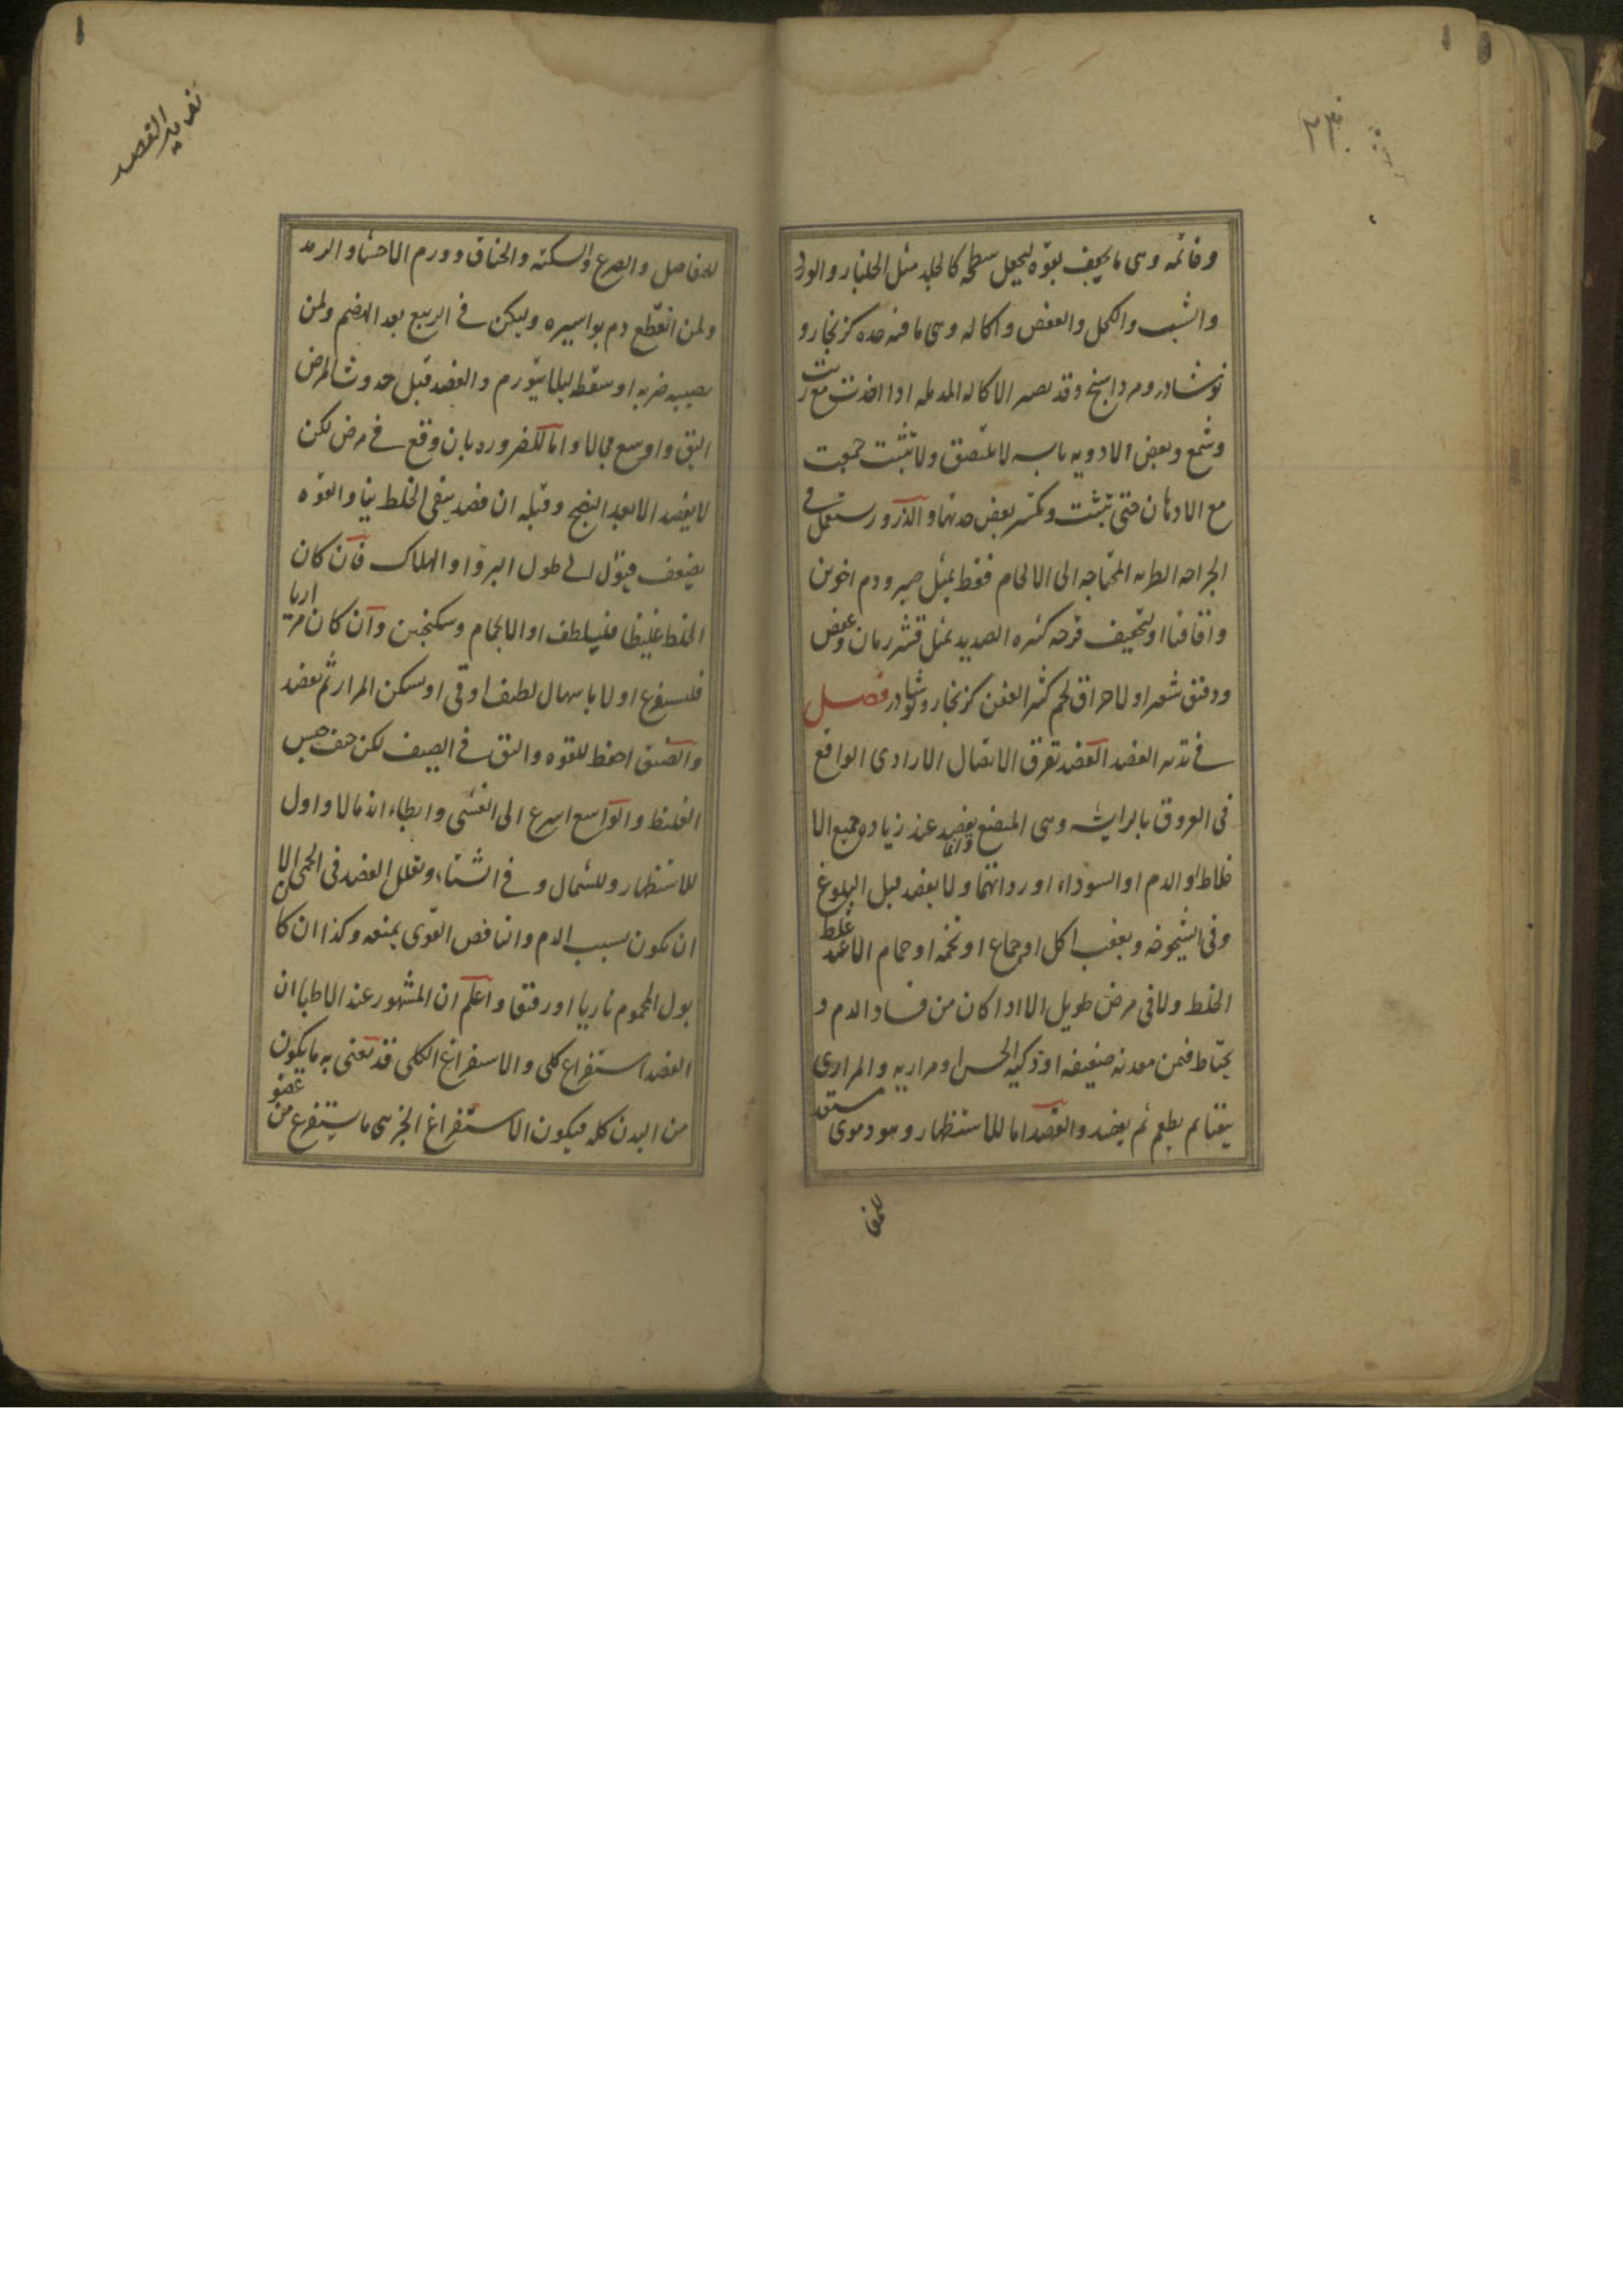 وخاتمه وهى ما يجفف بقوه ليجعل سطحه كالجلد مثل الجلنار والورد
والشب والكحل والعفص واكاله وهى ما فيه حده كزنجار و
نوشادر ومرداسنج وقد تصير الاكاله المدمله اذا اخذت مع زيت
وشمع وبعض الادويه يابسه لا تلتصق ولا تثبت جمعت
مع الادهان حتى تثبت وتكسر بعض حدتها والذرور يستعمل فى
الجراحه الطريه المحتاجه الى الالحام فقط بمثل صبر ودم اخوين
واقاقيا او تجفيف قرحه كثيره الصديد بمثل قشر رمان وعفص
ودقيق شعير او لاحراق لحم كثير العفن كزنجار ونوشادر فصل
فى تدبير الفصد الفصد تفرق الاتصال الارادى الواقع
فى العروق بالة وهى المبضع وانما يفصد عند زياده جميع الا
خلاط او الدم او السوداء او رداءتهما ولا يفصد قبل البلوغ
وفى الشيخوخه وبعقب اكل او جماع او تخمه او حمام الا عند غلظ
الخلط ولا فى مرض طويل الا اذا كان من فساد الدم و
يحتاط فيمن معدته ضعيفه او ذكيه الحس او مراريه والمرارى
يتقيا ثم يطعم ثم يفصد والفصد اما للاستظهار وهو دموى مستعد
للمفا
تدبير الفصد
للمفاصل والصرع والسكته والخناق وورم الاحشا والرمد
ولمن انقطع دم بواسيره وليكن فى الربيع بعد الهضم ولمن
يصيبه ضربه او سقطه ليلا يتورم والفصد قبل حدوث المرض
اليق واوسع مجالا واما للضروره بان وقع فى مرض لكن
لا يفصد الا بعد النضج وقبله ان فصد يبقى الخلط نيا والقوه
يضعف فيؤل الى طول البرؤ او الهلاك فان كان
الخلط غليظا فليلطف اولا بحمام وسكنجبين وان كان مراريا
فليستفرغ اولا باسهال لطيف او قى او يسكن المرار ثم يفصد
والضيق احفظ للقوه واليق فى الصيف لكن خيف حبس
الغليظ والواسع اسرع الى الغشى وابطاء اندمالا واولى
للاستظهار وللشمال وفى الشتاء ويقلل الفصد فى الحمى الا
ان يكون بسبب الدم والنافض القوى يمنعه وكذا ان كان
بول المحموم ناريا او رقيقا واعلم ان المشهور عند الاطبا ان
الفصد استفراغ كلى والاستفراغ الكلى قد يعنى به ما يكون
من البدن كله فيكون الاستفراغ الجزئى ما يستفرغ من عضو